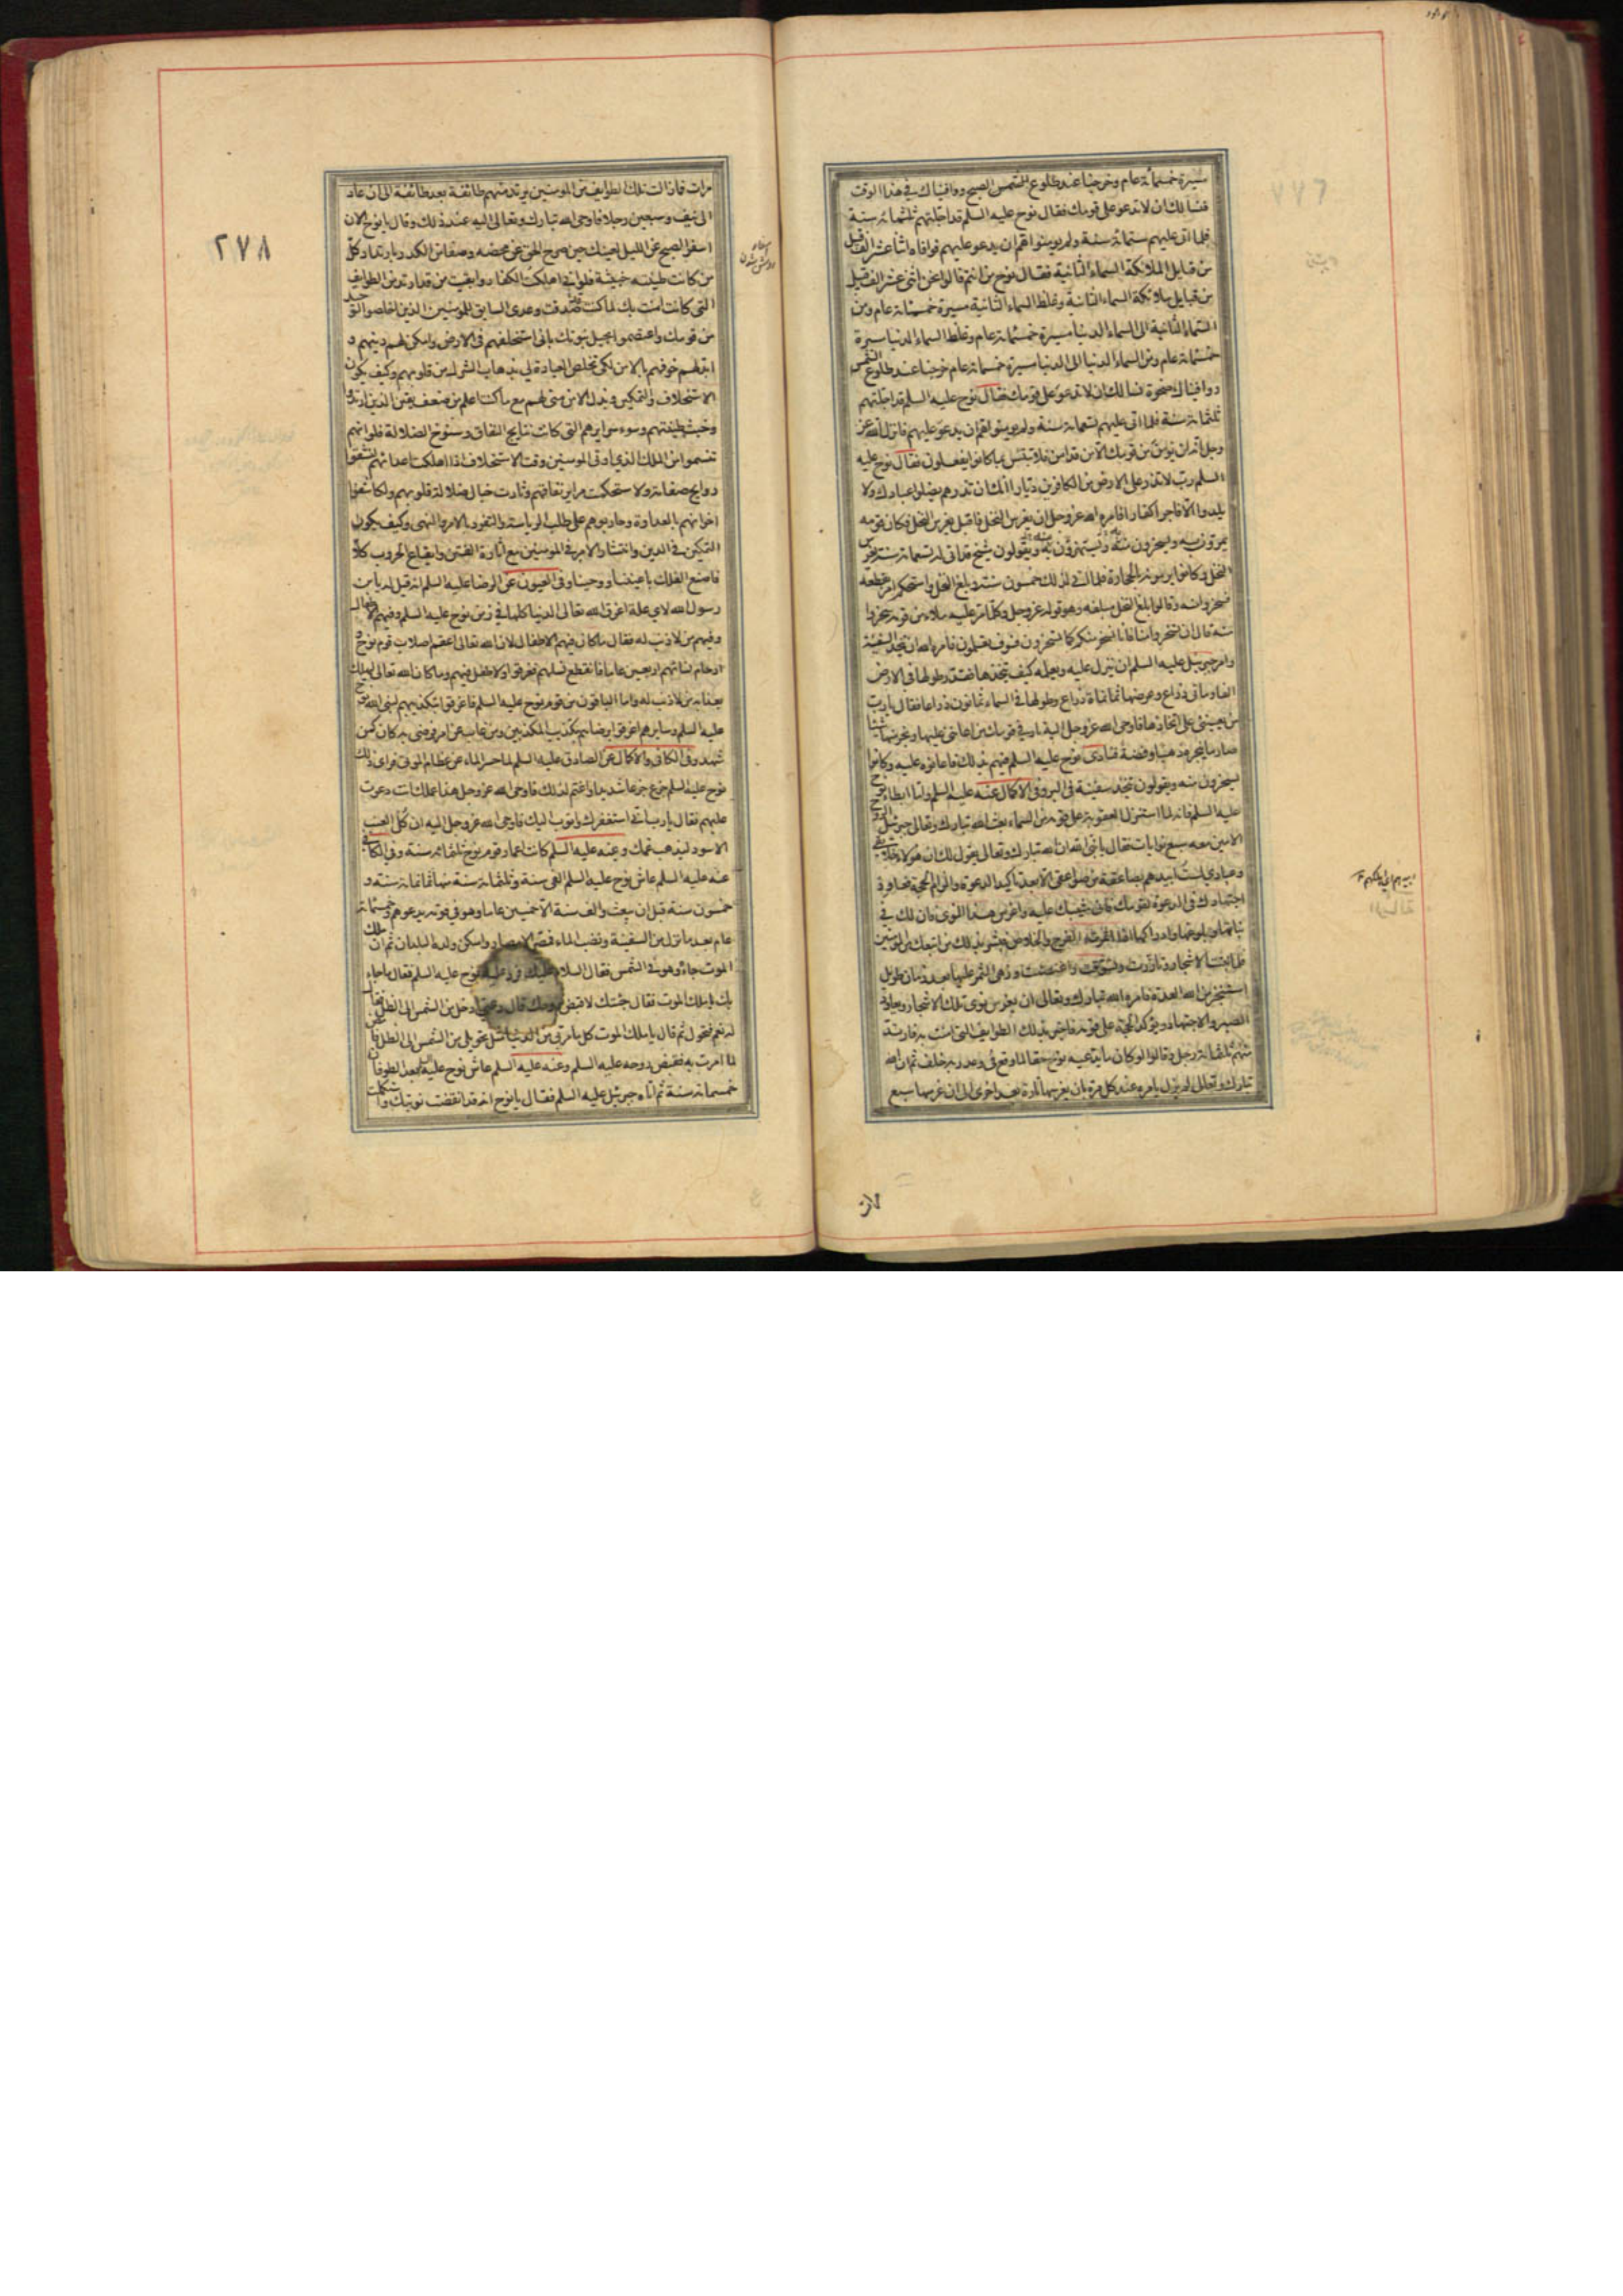 مسيرة خمسمائة عام وخرجنا عند طلوع الشمس الصبح ووافيناك في هذا الوقت
فنسالك ان لا تدعو على قومك فقال نوح عليه السلم قد اجلتهم ثلثمائة سنة
فلما اتى عليهم ستمائة سنة ولم يومنوا هم ان يدعو عليهم فوافاه اثنا عشر الف قبيل
من قبايل الملائكة السماء الثانية فقال نوح من انتم قالوا نحن اثنى عشر الف قبيل
من قبايل ملائكة السماء الثانية وغلظ السماء الثانية مسيرة خمسمائة عام ومن
السماء الثانية الى السماء الدنيا مسيرة خمسمائة عام وغلظ السماء الدنيا مسيرة
خمسمائة عام ومن السماء الدنيا الى الدنيا مسيرة خمسمائة عام خرجنا عند طلوع الشمس
ووافيناك ضحوة نسالك ان لا تدعو على قومك فقال نوح عليه السلم قد اجلتهم
ثلثمائة سنة فلما اتى عليهم تسعمائة سنة ولم يومنوا هم ان يدعو عليهم فانزل الله عز
وجل انه لن يومن من قومك الا من قد امن فلا تبتئس بما كانوا يفعلون فقال نوح عليه
السلم رب لا تذر على الارض من الكافرين ديارا انك ان تذرهم يضلوا عبادك ولا
يلدوا الا فاجرا كفارا فامره الله عز وجل ان يغرس النخل فاقبل يغرس النخل فكان قومه
يمرون به ويسخرون منه ويستهزؤن به ويقولون شيخ قد اتى له تسعمائة سنة يغرس
النخل وكانوا يرمونه بالحجارة فلما اتى لذلك خمسون سنة وبلغ النخل واستحكم امر بقطعه
فسخروا منه وقالوا بلغ النخل مبلغه وهو قوله عز وجل وكلما مر عليه ملاء من قومه سخروا
منه قال ان تسخروا منا فانا نسخر منكم كما تسخرون فسوف تعلمون فامره الله ان يتخذ السفينة
وامر جبرئيل عليه السلم ان ينزل عليه ويعلمه كيف يتخذها فقدر طولها في الارض
الفا وماتى ذراع وعرضها ثمانمائة ذراع وطولها في السماء ثمانون ذراعا فقال يا رب
من يعينني على اتخاذها فاوحى الله عز وجل اليه ناد في قومك من اعانني عليها ونجر منها شيئا
صار ما ينجره ذهبا وفضة فنادى نوح عليه السلم فيهم بذلك فاعانوه عليه وكانوا
يسخرون منه ويقولون يتخذ سفينة في البر وفي الاكمال عنه عليه السلم ولما ابطاء نوح
عليه السلم فانه لما استنزل العقوبة على قومه من السماء بعث الله تبارك وتعالى جبرئيل الروح
الامين معه سبع نوايات فقال يا نبي الله ان الله تبارك وتعالى يقول لك ان هولاء خلايقي
وعبادي لست ابيدهم بصاعقة من صواعقي الا بعد تاكيد الدعوة والزام الحجة فعاود
اجتهادك في الدعوة لقومك فاني مثيبك عليه واغرس هذا النوى فان لك في
نباتها وبلوغها وادراكها اذا اثمرت الفرج والخلاص فبشر بذلك من اتبعك من المومنين
فلما نبتت الاشجار وتازرت وتسوقت واغصنت وزهى الثمر عليها بعد زمان طويل
استنجز من الله العدة فامره الله تبارك وتعالى ان يغرس نوى تلك الاشجار ويعاود
الصبر والاجتهاد ويؤكد الحجة على قومه فاخبر بذلك الطوايف التي امنت به فارتد
منهم ثلثمائة رجل وقالوا لو كان ما يدعيه نوح حقا لما وقع في وعد ربه خلف ثم ان الله
تبارك وتعالى لم يزل يامره عند كل مرة بان يغرسها تارة بعد اخرى الى ان غرسها سبع
٢٧٨
مرات فما زالت تلك الطوايف من المومنين يرتد منهم طائفة بعد طائفة الى ان عاد
الى نيف وسبعين رجلا فاوحى الله تبارك وتعالى اليه عند ذلك وقال يا نوح الان
اسفر الصبح عن الليل لعينك حين صرح الحق عن محضه وصفا من الكدر بارتداد كل
من كانت طينته خبيثة فلو اني اهلكت الكفار وابقيت من قد ارتد من الطوايف
التي كانت امنت بك لما كنت صدقت وعدي السابق للمومنين الذين اخلصوا التوحيد
من قومك واعتصموا بحبل نبوتك باني استخلفهم في الارض وامكن لهم دينهم و
ابدلهم خوفهم بالامن لكي تخلص العبادة لي بذهاب الشرك من قلوبهم وكيف يكون
الاستخلاف والتمكين وبدل الامن مني لهم مع ما كنت اعلم من ضعف يقين الذين ارتدوا
وخبث طينتهم وسوء سرايرهم التي كانت نتايج النفاق وسنوح الضلالة فلو انهم
تنسموا من الملك الذي اوتى المومنين وقت الاستخلاف اذا اهلكت اعدائهم لنشقوا
روايح صفاته ولاستحكمت مراير نفاقهم وثارت خبال ضلالة قلوبهم ولكاشفوا
اخوانهم بالعداوة وحاربوهم على طلب الرياسة والتفرد بالامر والنهى وكيف يكون
التمكين في الدين وانتشار الامر في المومنين مع اثارة الفتن وايقاع الحروب كلا
فاصنع الفلك باعيننا ووحينا وفي العيون عن الرضا عليه السلم انه قيل له يا بن
رسول الله لاي علة اغرق الله تعالى الدنيا كلها في زمن نوح عليه السلم وفيهم الاطفال
وفيهم من لا ذنب له فقال ما كان فيهم الاطفال لان الله تعالى اعقم اصلاب قوم نوح و
ارحام نسائهم اربعين عاما فانقطع نسلهم فغرقوا ولا طفل فيهم وما كان الله تعالى ليهلك
بعذابه من لا ذنب له واما الباقون من قوم نوح عليه السلم فاغرقوا بتكذيبهم لنبي الله نوح
عليه السلم وسايرهم اغرقوا برضاهم بتكذيب المكذبين ومن غاب عن امر فرضى به كان كمن
شهده وفي الكافي والاكمال عن الصادق عليه السلم لما حسر الماء عن عظام الموتى فراى ذلك
نوح عليه السلم جزع جزعا شديدا واغتم لذلك فاوحى الله عز وجل هذا عملك انت دعوت
عليهم فقال يا رب اني استغفرك واتوب اليك فاوحى الله عز وجل اليه ان كل العنب
الاسود ليذهب غمك وعنه عليه السلم كانت اعمار قوم نوح ثلثمائة سنة وفي الكافي
عنه عليه السلم عاش نوح عليه السلم الفى سنة وثلثمائة سنة منها ثمانمائة سنة و
خمسون سنة قبل ان يبعث والف سنة الا خمسين عاما وهو في قومه يدعوهم وخمسمائة
عام بعد ما نزل من السفينة ونضب الماء فمصر الامصار واسكن ولده البلدان ثم ان ملك
الموت جاءه وهو في الشمس فقال السلام عليك فرد عليه نوح عليه السلم فقال ما جاء
بك يا ملك الموت فقال جئتك لاقبض روحك قال دعني ادخل من الشمس الى الظل فقال
له نعم فتحول ثم قال يا ملك الموت كل ما مر بي من الدنيا مثل تحويلي من الشمس الى الظل فامض
لما امرت به فقبض روحه عليه السلم وعنه عليه السلم عاش نوح عليه السلم بعد الطوفان
خمسمائة سنة ثم اتاه جبرئيل عليه السلم فقال يا نوح انه قد انقضت نبوتك واستكملت